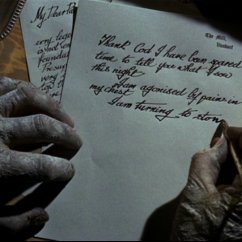 My Dear Pa
The Mill,
Thank God I have been spared
time to tell you what I saw
this night.
I am agonised by pain in
my chest.
I am turning to stone